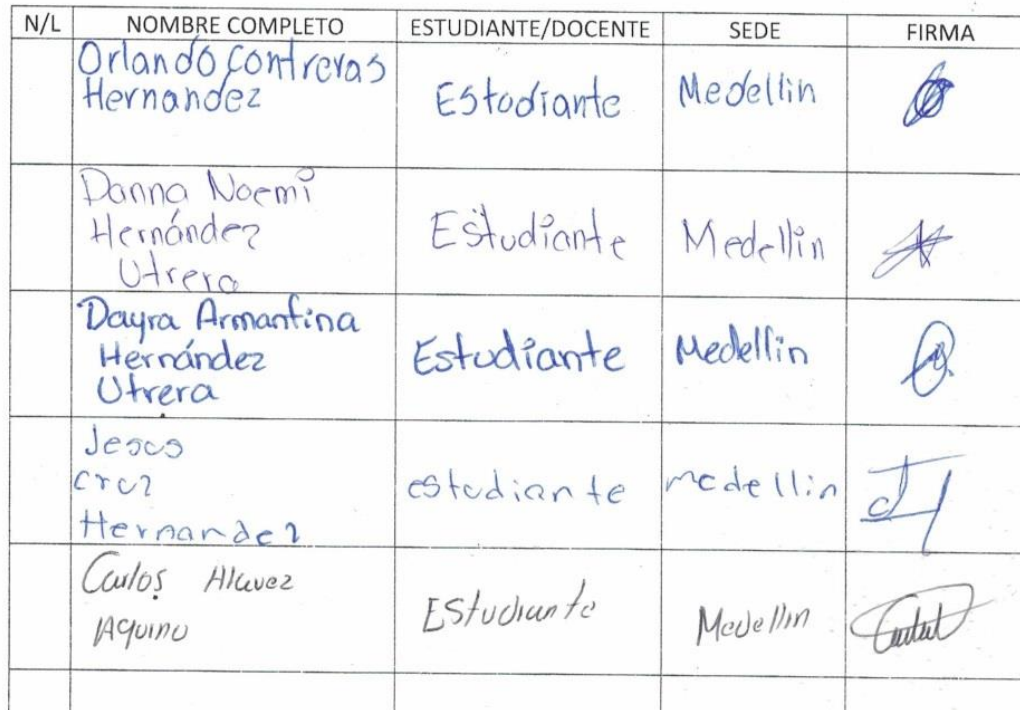 N/L NOMBRE COMPLETO ESTUDIANTE/DOCENTE SEDE FIRMA
Orlando Contreras
Hernandez Estudiante Medellin
Danna Noemi
Hernández Estudiante Medellin
Utrera
Dayra Armantina
Hernández Estudiante Medellin
Utrera
Jesus
Cruz estudiante medellin
Hernandez
Carlos Alavez
Aquino Estudiante Medellin